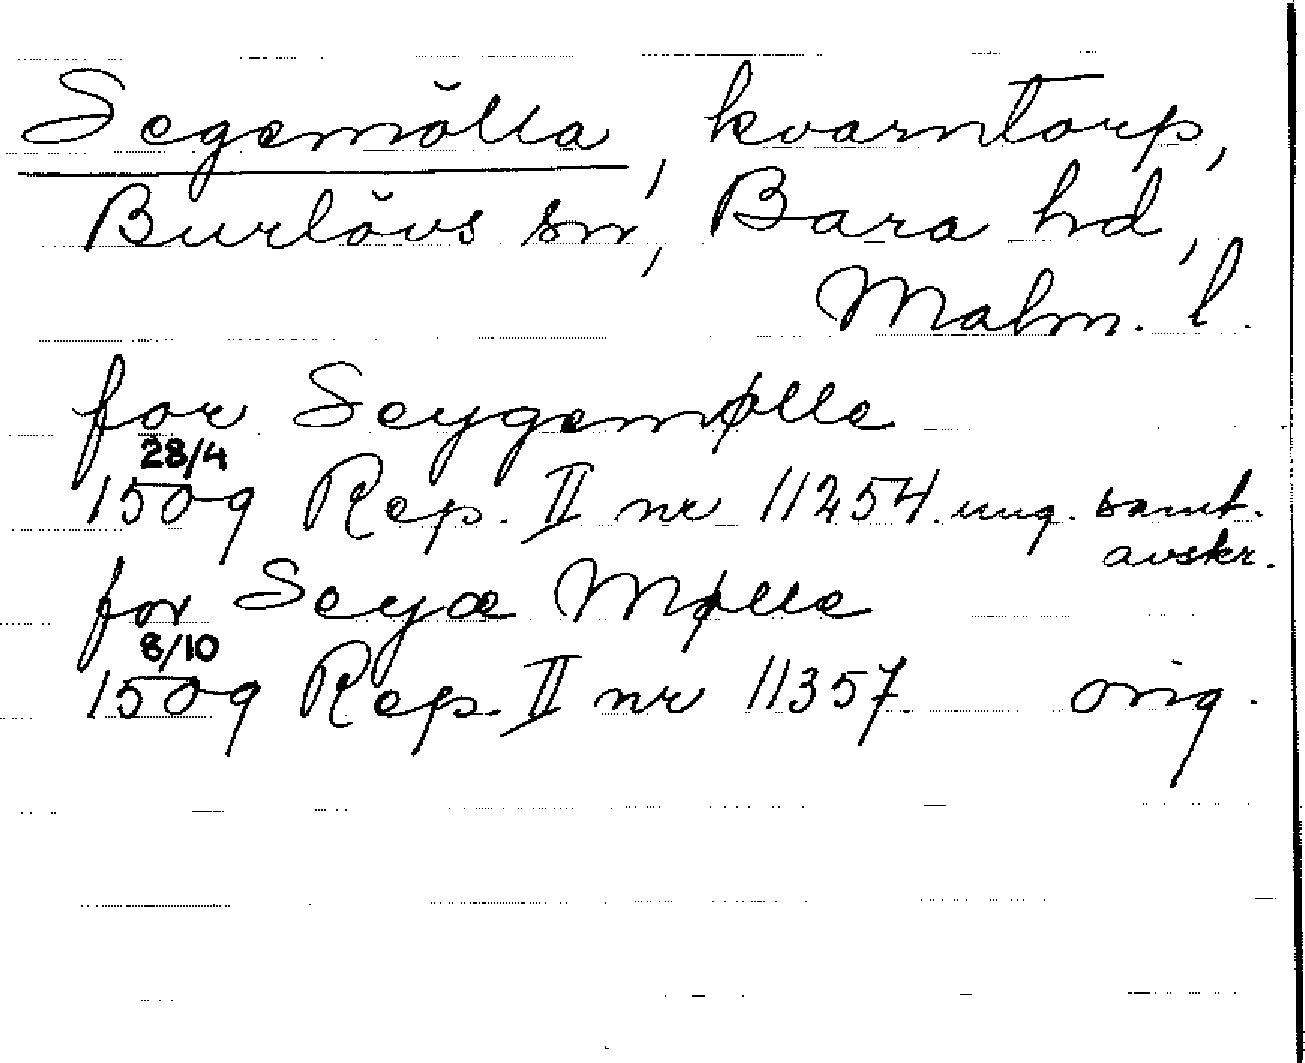 Segemölla, kvarntorp,
Burlövs sn, Bara hd,
Malm. l.
for Seygemølle
28/4
1509 Rep. II nr 11254. ung. samt.
avskr.
for Seyæ Mølle
8/10
1509 Rep. II nr 11357 orig.